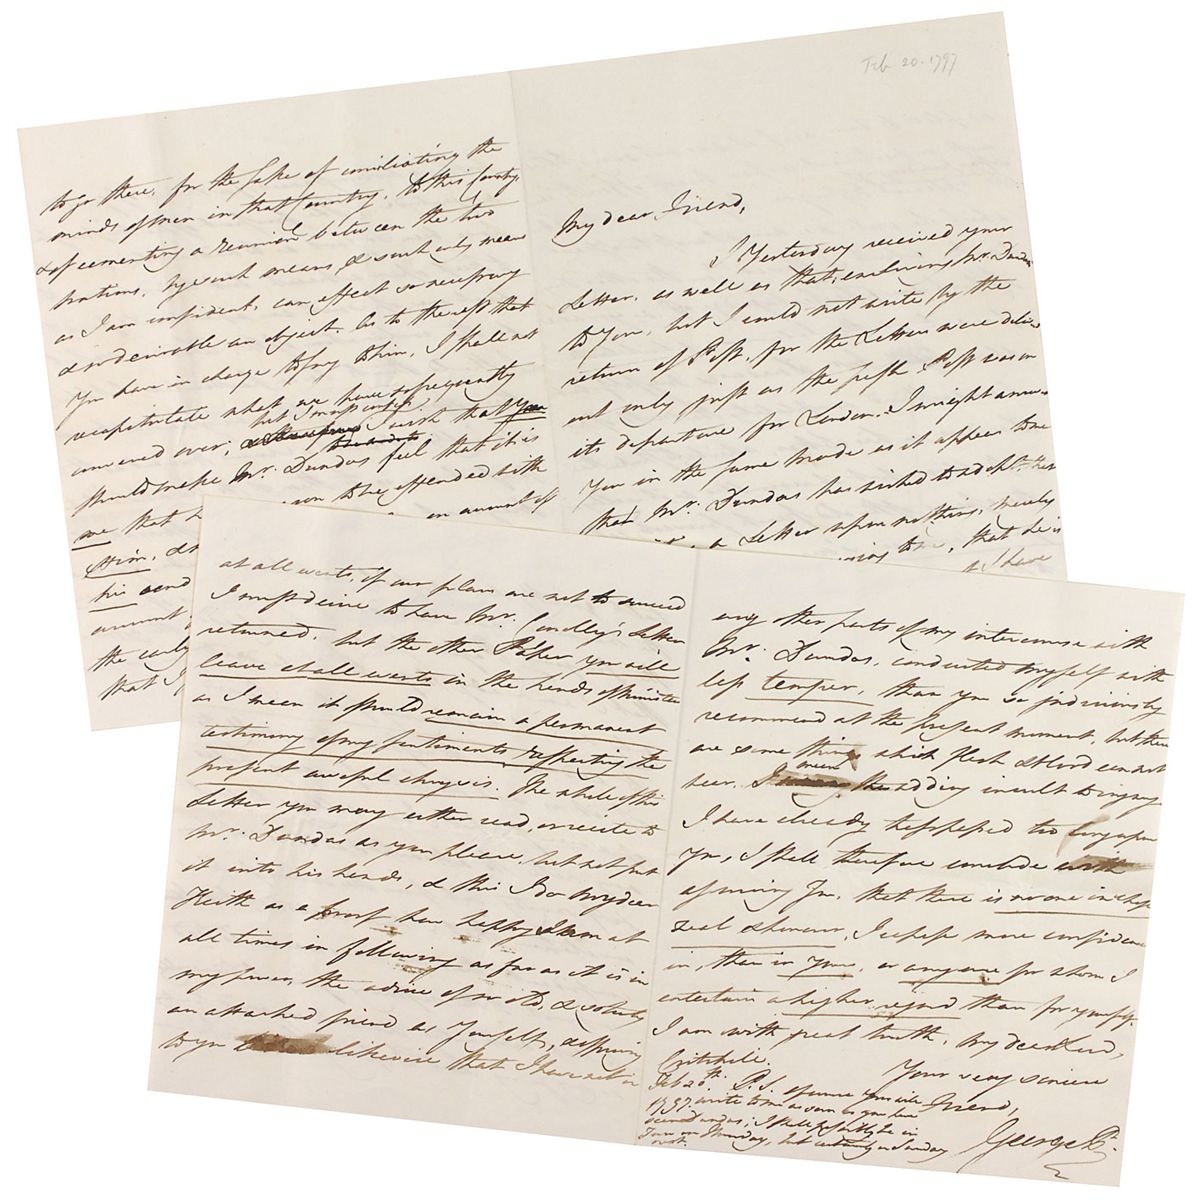 Feb 20. 1797
My dear Friend,
I Yesterday received your
Letter, as well as that, enclosing Mr. Dundas
to You, but I could not write by the
return of Post, for the Letters were deliver
out only just as the first Post was on
its departure for London. I might answer
You in the same mode as it appears to me
that Mr. Dundas has wished to
a Letter upon nothing, merely
to me, that he is
I have
to go there, for the sake of conciliating the
minds of men in that Country, to this Country,
& of cementing a reunion between the two
nations, by such means, & such only means
as I am confident, can effect so necessary
& so desirable an object. As to the rest that
You have in charge to say to him, I shall not
recapitulate what we have so frequently
canvered over; but I must confess I wish that you
should make Mr. Dundas feel that it is
me that
son to be offended with
Him, &
on account of
his
account
the early
that I
at all events, if our plans are not to succeed
I must desire to have Mr. Letter
returned, but the other Paper you will
leave at all events in the hands of Minister
as I mean it should remain a permanent
testimony of my sentiments respecting the
present awful changes. The whole of this
Letter you may either read, or recite to
Mr. Dundas as you please, but not put
it into his hands, & this I do my dear
Keith as a proof how happy I am at
all times in following as far as it is in
my power, the advice of so old, & so truly
an attached friend as Yourself, assuring
to you likewise that I have not in
any other parts of my intercourse with
Mr. Dundas, conducted myself with
less temper, than you so judiciously
recommend at the present moment, but there
are some things which flesh & blood cannot
bear, I mean the adding insult to injury
I have already trespassed too long upon
You, I shall therefore conclude with
assuring You, that there is no one in whose
zeal & honour, I repose more confidence
in, than in Yours, or anyone for whom I
entertain a higher regard than for yourself.
I am with great truth, My dear Lord,
Critchile.
Feb 20th.
1797.
Your very sincere
Friend,
George P.
P.S. of course You will
write to me as soon as you have
seen Dundas; I shall possibly be in
Town on Thursday, but certainly on Sunday
next.